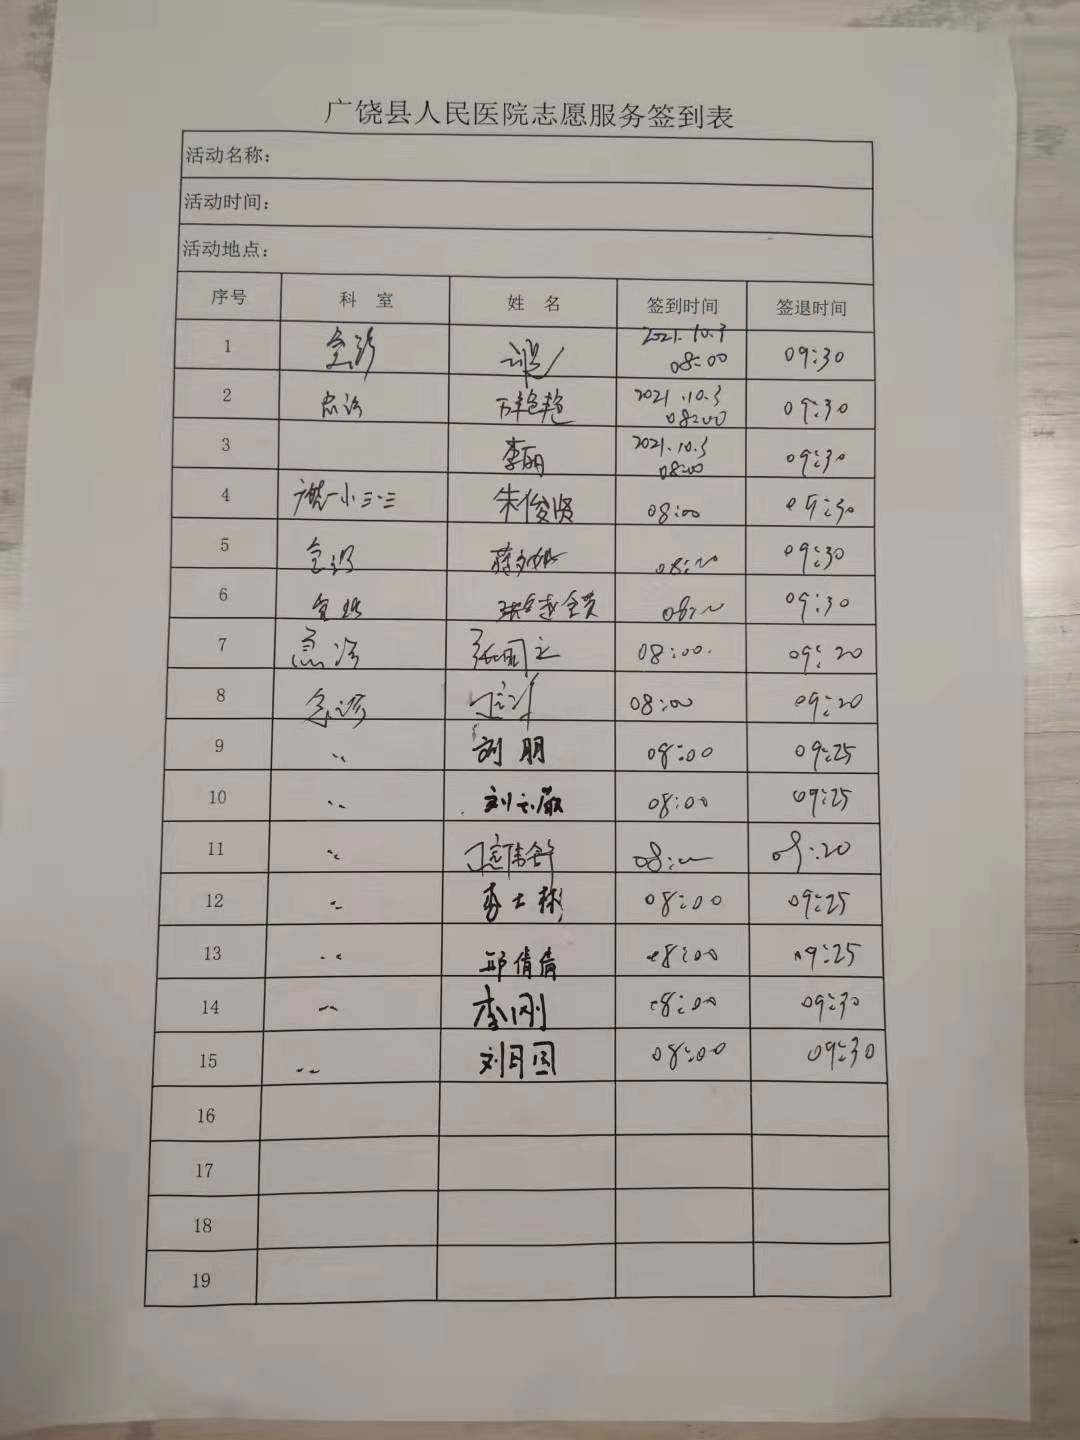 广饶县人民医院志愿服务签到表
活动名称：
活动时间：
活动地点：
序号 科 室 姓 名 签到时间 签退时间
1 急诊 2021.10.3 08:00 09:30
2 急诊 2021.10.3 08:00 09:30
3 李丽 2021.10.3 08:00 09:30
4 朱俊贤 08:00 09:30
5 急诊 08:00 09:30
6 急诊 08:00 09:30
7 急诊 张国立 08:00. 09:20
8 急诊 08:00 09:20
9 刘朋 08:00 09:25
10 08:00 09:25
11 08:00 09:20
12 李士彬 08:00 09:25
13 邱倩倩 08:00 09:25
14 李刚 08:00 09:30
15 08:00 09:30
16
17
18
19